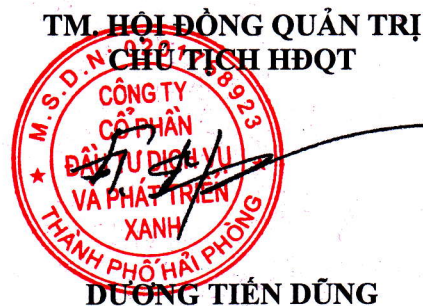 TM. HỘI ĐỒNG QUẢN TRỊ
CHỦ TỊCH HĐQT
M.S.D.N:
CÔNG TY
CỔ PHẦN
ĐẦU TƯ DỊCH VỤ
VÀ PHÁT TRIỂN
XANH
THÀNH PHỐ HẢI PHÒNG
DƯƠNG TIẾN DŨNG